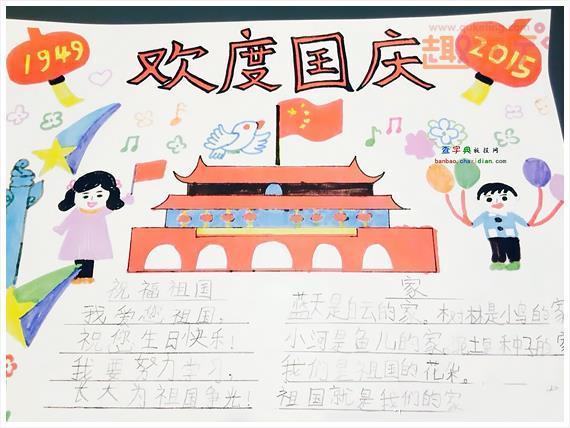 1949
欢度国庆
2015
www.qukming.com
趣
查字典 板报网
banbao.chazidian.com
祝福祖国
我爱您祖国，
祝您生日快乐！
我要努力学习，
长大为祖国争光！
家
蓝天是白云的家。树林是小鸟的家
小河是鱼儿的家，泥土是种子的家
我们是祖国的花朵。
祖国就是我们的家